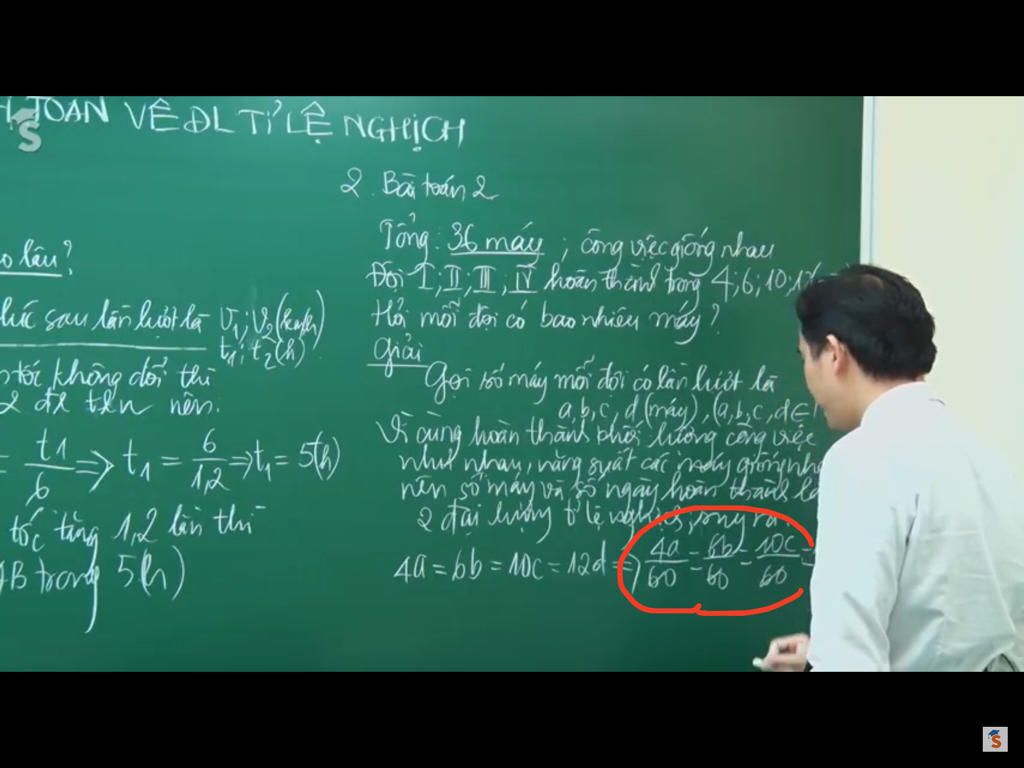 H TOÁN VỀ ĐL TỈ LỆ NGHỊCH
S
2. Bài toán 2
Tổng: 36 máy ; công việc giống nhau
Đội I; II; III; IV hoàn thành trong 4; 6; 10; 12
Hỏi mỗi đội có bao nhiêu máy?
Giải
Gọi số máy mỗi đội có lần lượt là
a, b, c, d (máy), (a, b, c, d ∈
Vì cùng hoàn thành khối lượng công việc
như nhau, năng suất các máy giống nha
nên số máy và số ngày hoàn thành là
2 đại lượng tỉ lệ nghịch, suy ra:
4a = 6b = 10c = 12d ⇒ 4a/60 = 6b/60 = 10c/60 =
o lâu?
lúc sau lần lượt là v1; v2 (km/h)
t1; t2 (h)
tốc không đổi thì
2 ĐL TLN nên.
= t1/6 ⇒ t1 = 6/1,2 ⇒ t1 = 5(h)
tốc tăng 1,2 lần thì
AB trong 5(h)
S